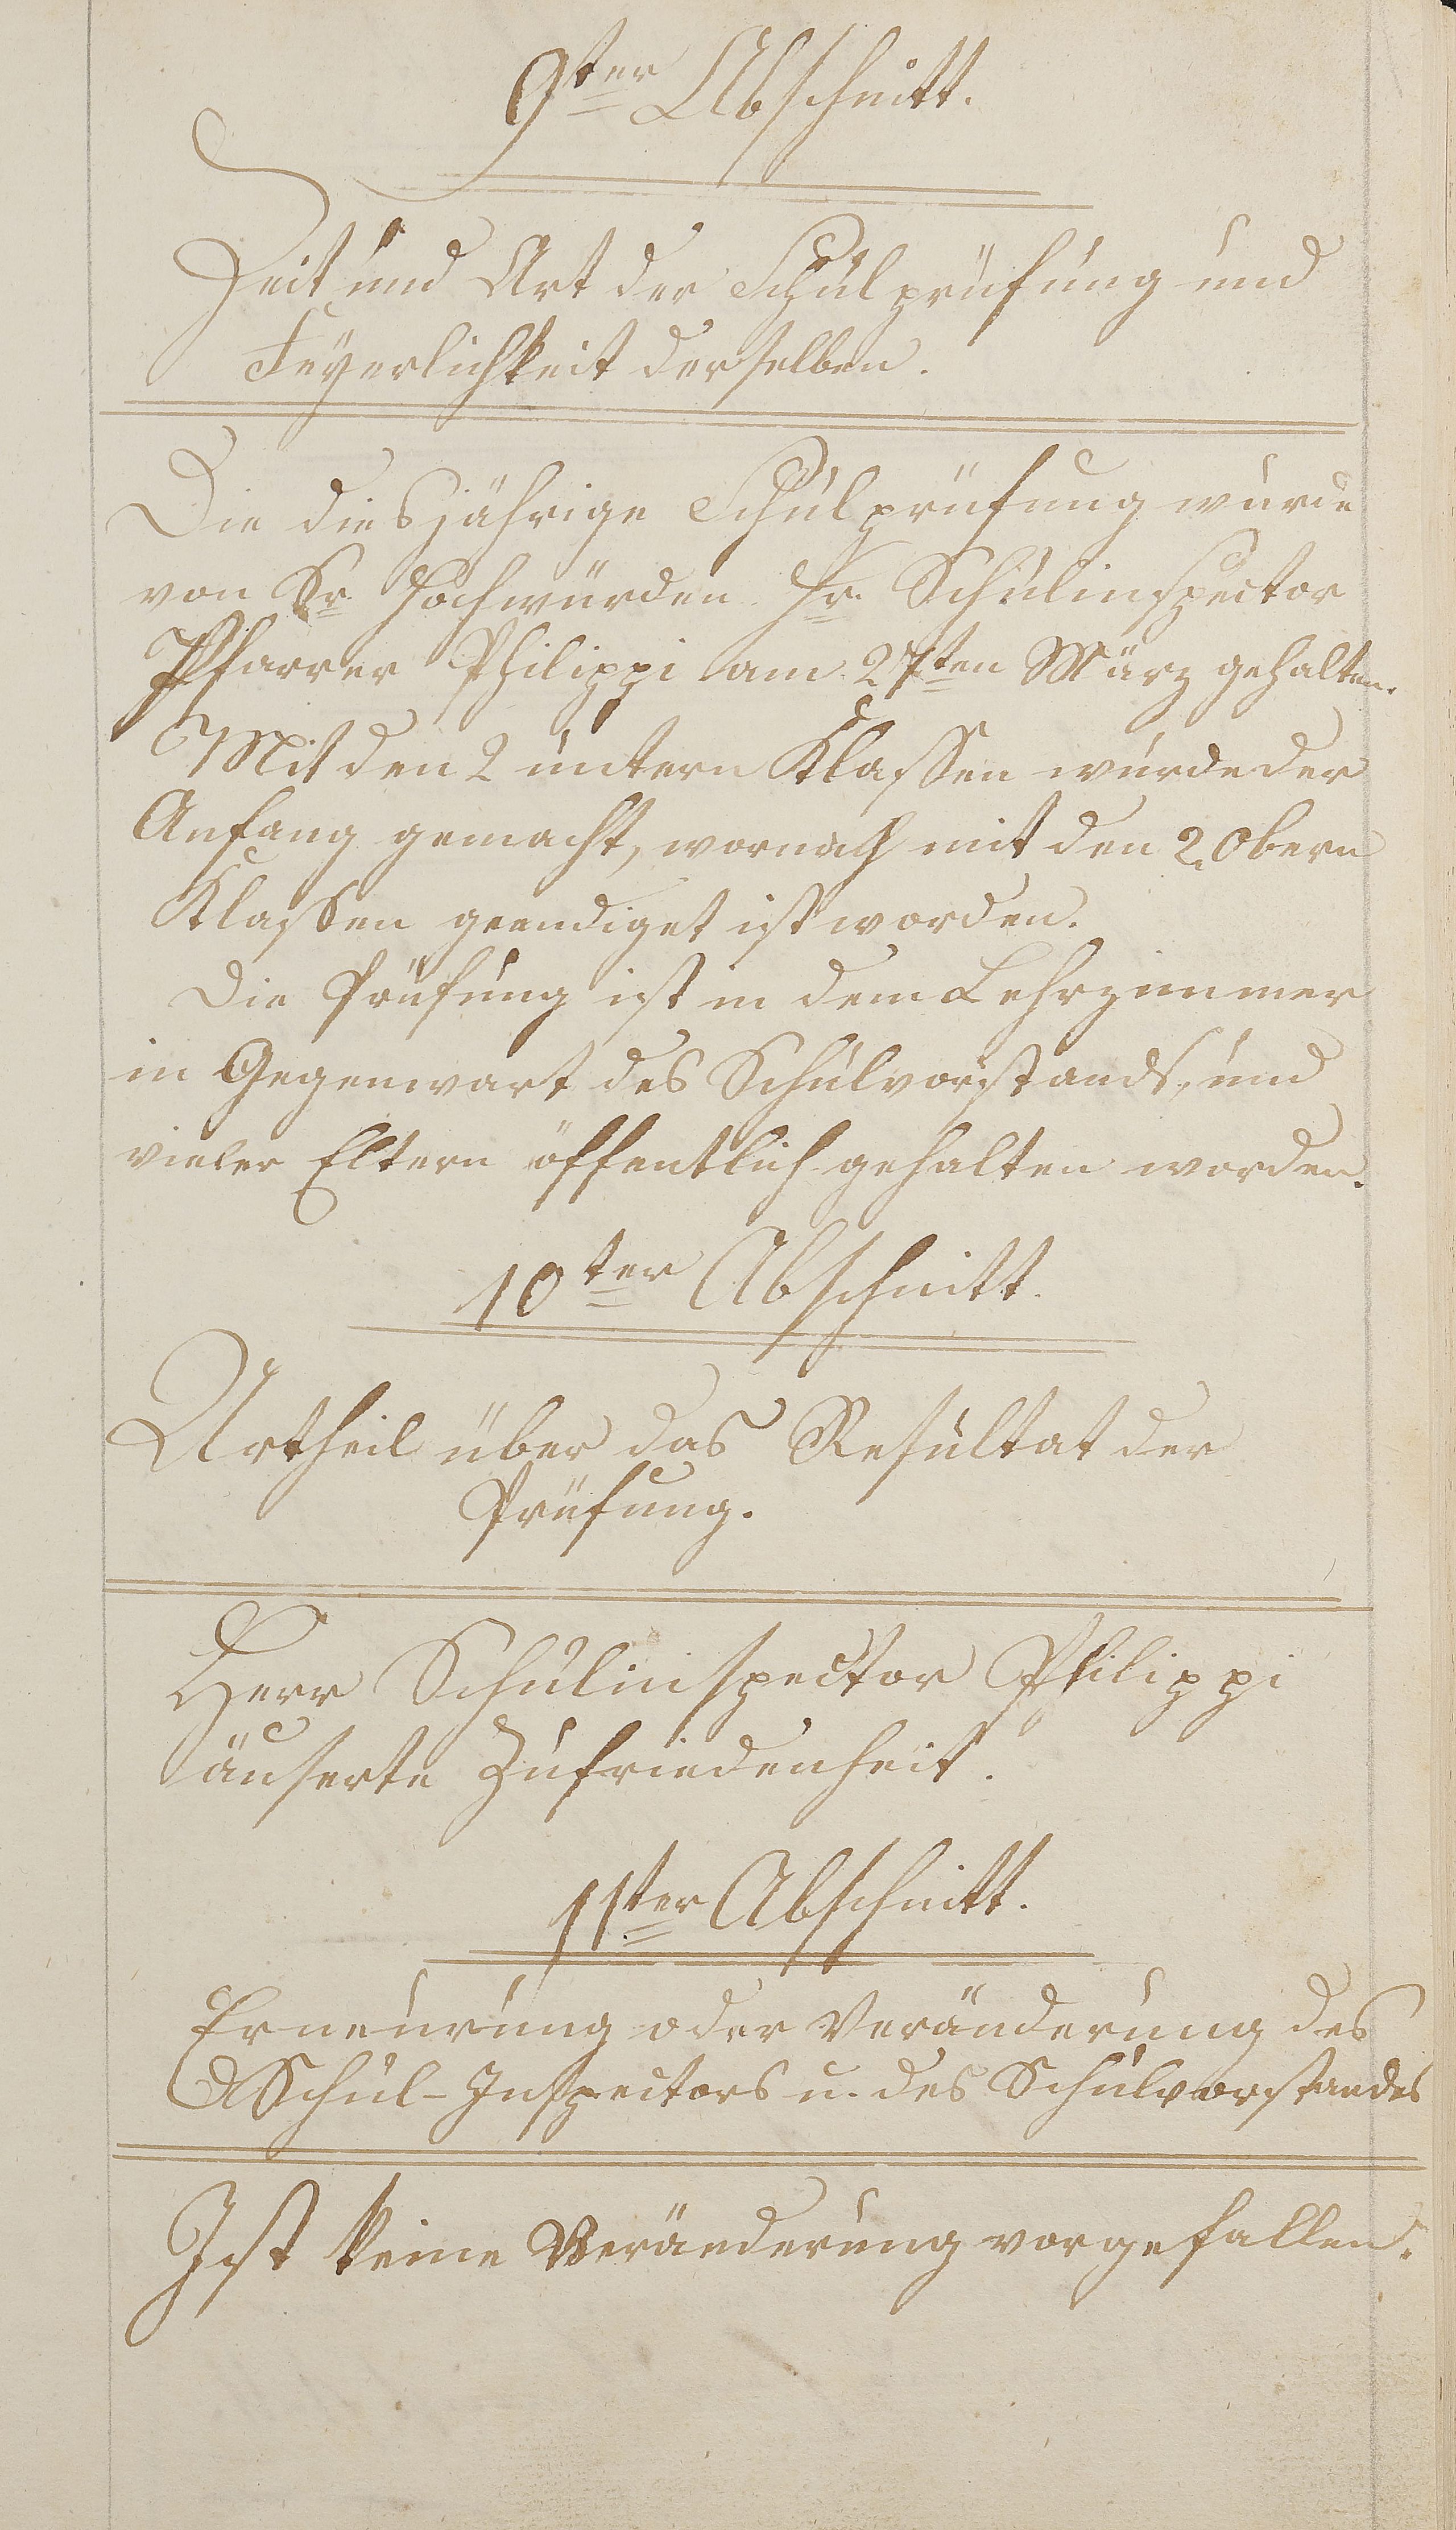 9ter Abschnitt.
Zeit und Art der Schulprüfung und
Feyerlichkeit derselben.
Die diesjährige Schulprüfung wurde
von Sr. Hochwürden Hr. Schulinspector
Pfarrer Philippi am 27ten März gehalten.
Mit den 2 untern Klassen wurde der
Anfang gemacht, wornach mit den 2. obern
Klassen geendiget ist worden.
Die Prüfung ist in dem Lehrzimmer
in Gegenwart des Schulvorstands, und
vieler Eltern öffentlich gehalten worden.
10ter Abschnitt.
Urtheil über das Resultat der
Prüfung.
Herr Schulinspector Philippi
äuserte Zufriedenheit.
11ter Abschnitt.
Erneurung oder Veränderung des
Schul-Inspectors u. des Schulvorstandes
Ist keine Veränderung vorgefallen.